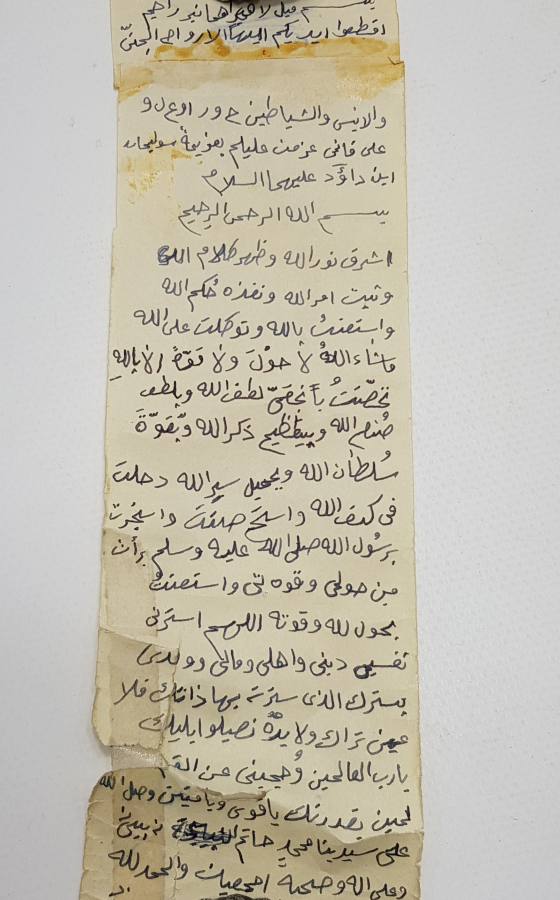 اقطعوا ايديكم ايتها الارواح الجنيّ
والانس والشياطين
على عزمت عليكم بعزيمة سوليمان
ابن داؤد عليهما السلام
بسم الله الرحمن الرحيم
اشرق نورالله وظهر كلام الله
وثبت امر الله ونفذه حُكم الله
واستعنتُ بالله وتوكلت على الله
ماشاءاللهُ لا حوْلَ ولا قوّةَ الا باللهِ
تحصّنتُ بأ لطف الله وبلطف
صُنع الله وبِ ذكر الله وبّقوّةَ
سُلطان الله و سير الله دخلت
فى كنف الله واستجرت
برسُول الله صلى الله عليه وسلم برأت
مِن حولى وقوه تى واستعنتُ
بحول لله وقوته اللهم استرنى
نفسى دينى واهلى ومالى وولدى
بسترك الذى سترت بها ذاتك فلا
عين تراك ولا يدٌ
يارب العالمين وُحجبنى عن القو
لمين بقدرتك يا قوى ويا متين وصل الله
على سيدنا محمد خاتم
وعلى اله وصحبة اجمعين والحمدلله